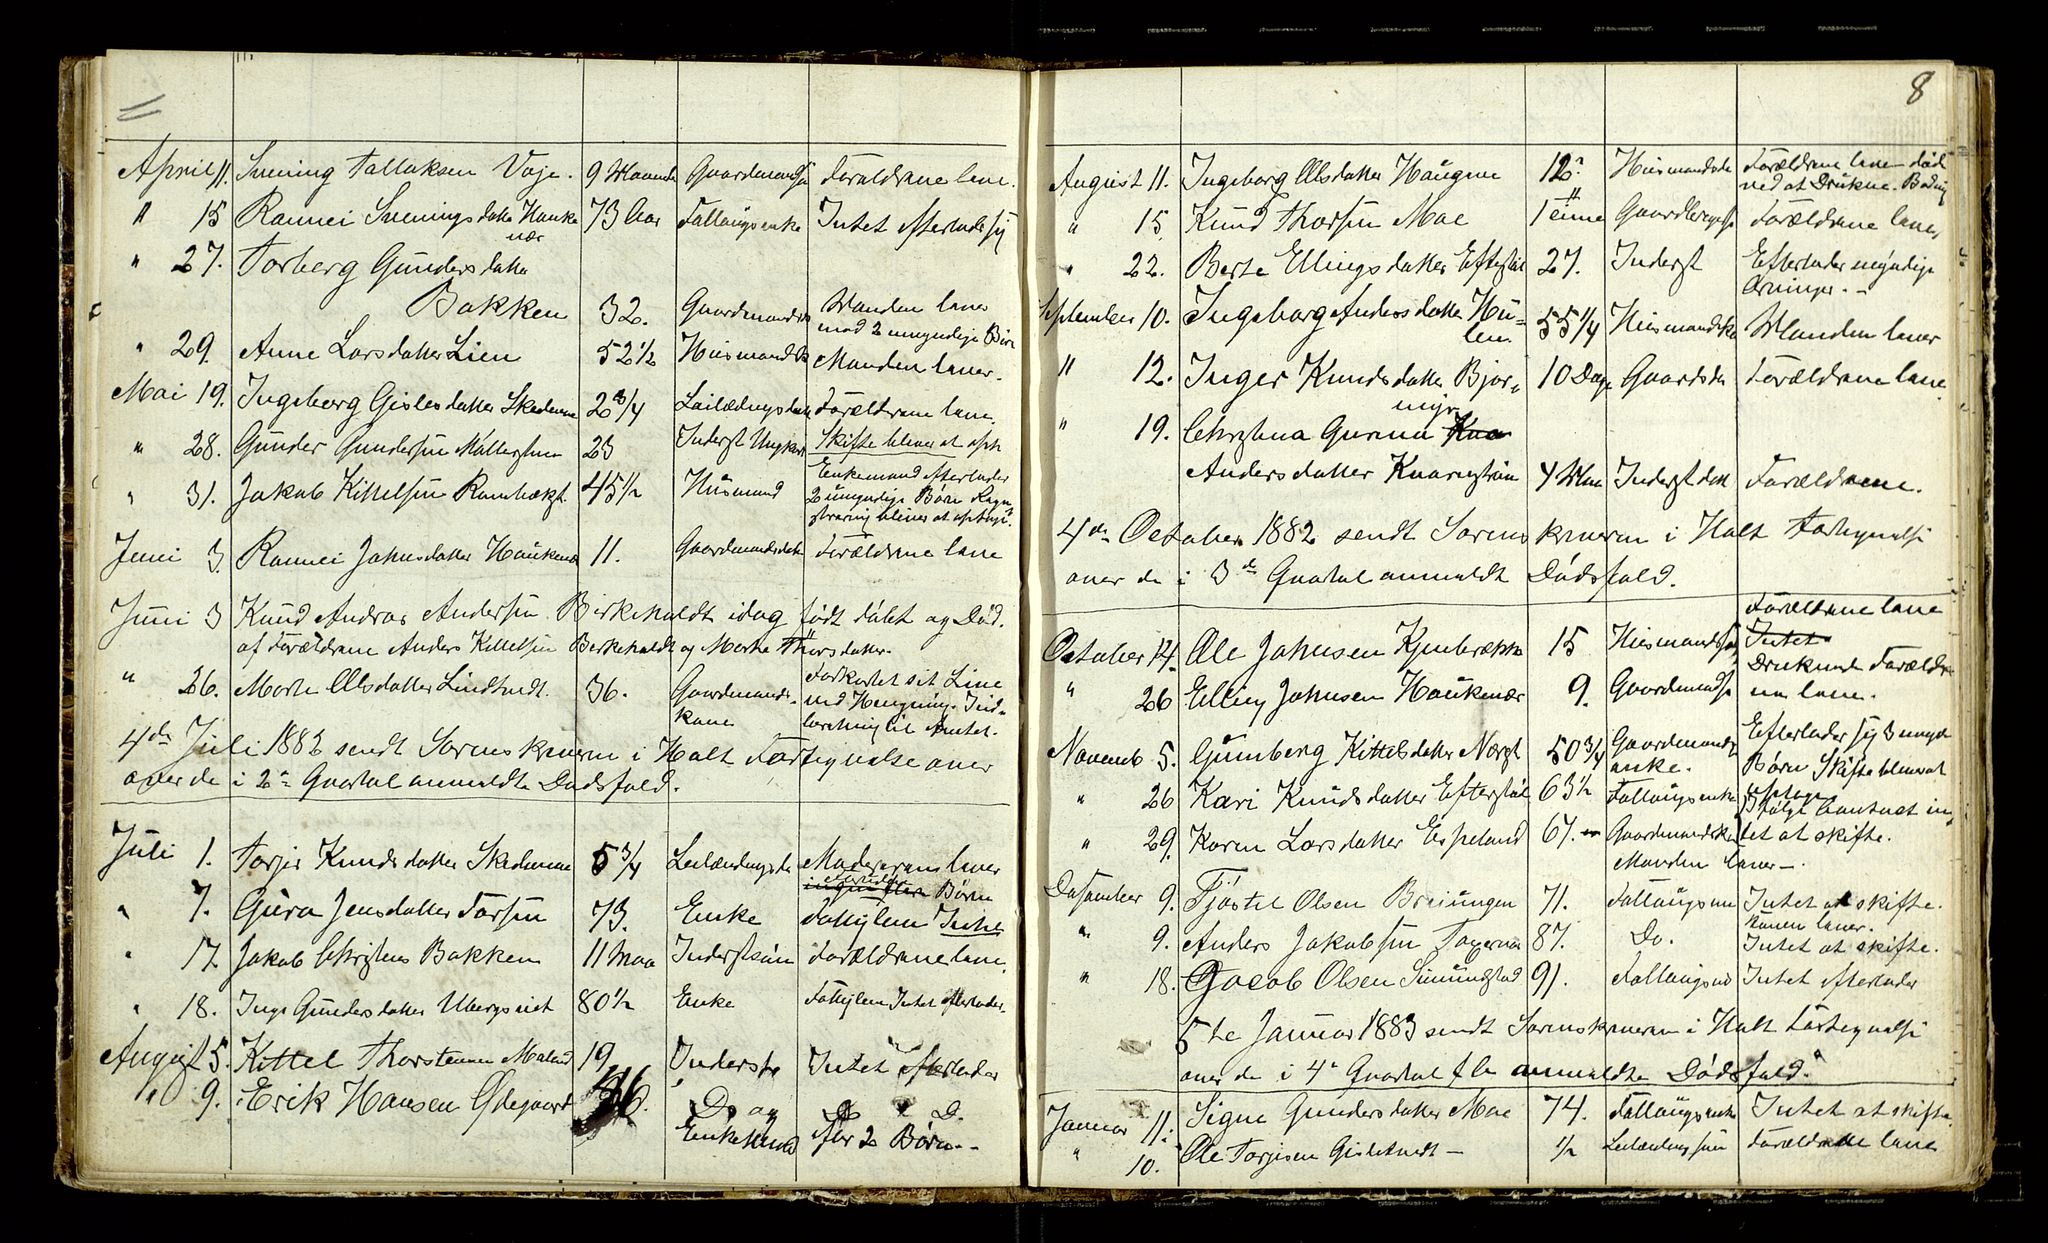 April 11. Svening Tallaksen Vaje. 9 Maaneder Gaardmands Forældrene lever.
" 15 Rannei Sveningsdatter Haukenær 73 Aar Fattigsenke Intet efterlader sig
" 27. Torberg Gundersdatter
Bakken 32. Gaardmands Manden lever med 2 umyndige Børn
" 29. Anne Larsdatter Lien 52 1/2 Huusmandsk Manden lever.
Mai 19. Ingeborg Gislesdatter 2 3/4 Leilændingsdatt Forældrene lever.
" 28. Gunder Gundersen 23 Inderst Ungkarl Skifte bliver at oph
" 31. Jakob Kittelsen 45 1/2 Huusmand Enkemand efterlader
2 umyndige Børn Regi
strering bliver at optage.
Juni 3. Rannei Johnsdatter Haukenæs 11. Gaardmandsdatt Forældrene lever
Juni 3 Knud Andreas Andersen Birkeholdt idag født døbt og Død.
af Forældrene Anders Kittelsen Birkeholdt og Marthe Thorsdatter.
" 26. Marte Olsdatter Lindtvedt. 36. Gaardmands-
kone Forkortet sit Live
ved Hengning. Ind-
beretning til Amtet.
4de Juli 1882 sendt Sorenskriveren i Holt Fortegnelse over
over de i 2det Qvartal anmeldte Dødsfald.
Juli 1. Torjer Knudsdatter 5 3/4 Leilændingsda Moderen lever
Børn
" 7. Gúro Jensdatter Torsen 73. Enke Fattiglem Intet
" 17. Jakob Christens Bakken 11 Maa Inderstsøn Forældrene lever.
" 18. Inge Gundersdatter Ubergsvet 80 1/2 Enke Fattiglem Intet efterlader.
August 5. Kittel Thorstensen 19 Inderste Intet efterlader
" 9. Erik Hansen Ødegaard Do og Do " D.
Enkemand efter 2 Børn.-
8
August 11. Ingeborg Olsdatter Haugene 12 Huusmandsda Forældrene lever død
ved at Drukne. Bading
" 15. Knud Thorsen Moe 1 Gaardbrugers Forældrene lever
" 22. Berte Ellingsdatter Efterstøl 27. Inderst Efterlader myndige
Arvinger.-
September 10. Ingeborg Andersdatter Hu-
len 55 1/4 Huusmandsko Manden lever
" 12. Inger Knudsdatter Bjor,
myr 10 Dage Gaardsda Forældrene lever.
" 19. Christina Gurina Kna
Andersdatter Knarestrøm 4 Maa Inderst datt Forældrene.
4de October 1882 sendt Sorenskriveren i Holt Fortegnelse
over de i 3de Qvartal anmeldt Dødsfald.
October 14. Ole Johnsen Kjenbrække 15 Huusmandssøn Forældrene lever
Intet
" 26 Elling Johnsen Haukenær 9. Gaardmands Druknede Forældre
ne lever.
Novemb 5. Gunberg Kittelsdatter 50 3/4 Gaardmands
enke. Efterlader sig 3 umyn
Børn Skifte bliver at
optage
" 26 Kari Knudsdatter Efterstøl 63 1/2 Fattigsenke
" 29. Karen Larsdatter Espeland 67. Gaardmandske tet at skifte.
Manden lever-.
Desember 9. Tjøstel Olsen 71. Fattigs Intet at skifte.
" 9. Anders Jakobsen 87. Do. Konen lever.
Intet at skifte.
" 18. Jacob Olsen Simonstad 91. Fattigs Intet efterlader
5te Januar 1883 sendt Sorenskriveren i Holt Fortegnelse
over de i 4de Qvartal anmeldte Dødsfald.
Januar 11. Signe Gundersdatter Moe 74. Fattigsenke Intet at skifte.
" 10. Ole Torjisen - 1/2 Leilændingssøn Forældrene lever